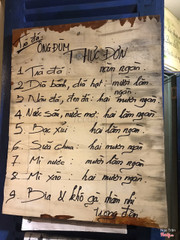 Trà đá
ÔNG ĐÙM THỰC ĐƠN
1 Trà đá : năm ngàn.
2 Đá bánh, đá hạt : mười lăm ngàn.
3 Nâu đá, đen đá : hai mươi ngàn.
4 Nước sấu, nước mơ : hai lăm ngàn
5 Bạc xỉu : hai lăm ngàn
6 Sữa chua : hai mươi ngàn
7 Mì nước : mười lăm ngàn.
8 Mì xào : hai mươi ngàn
9 Bia & khô gà nhân nhị
trong đêm